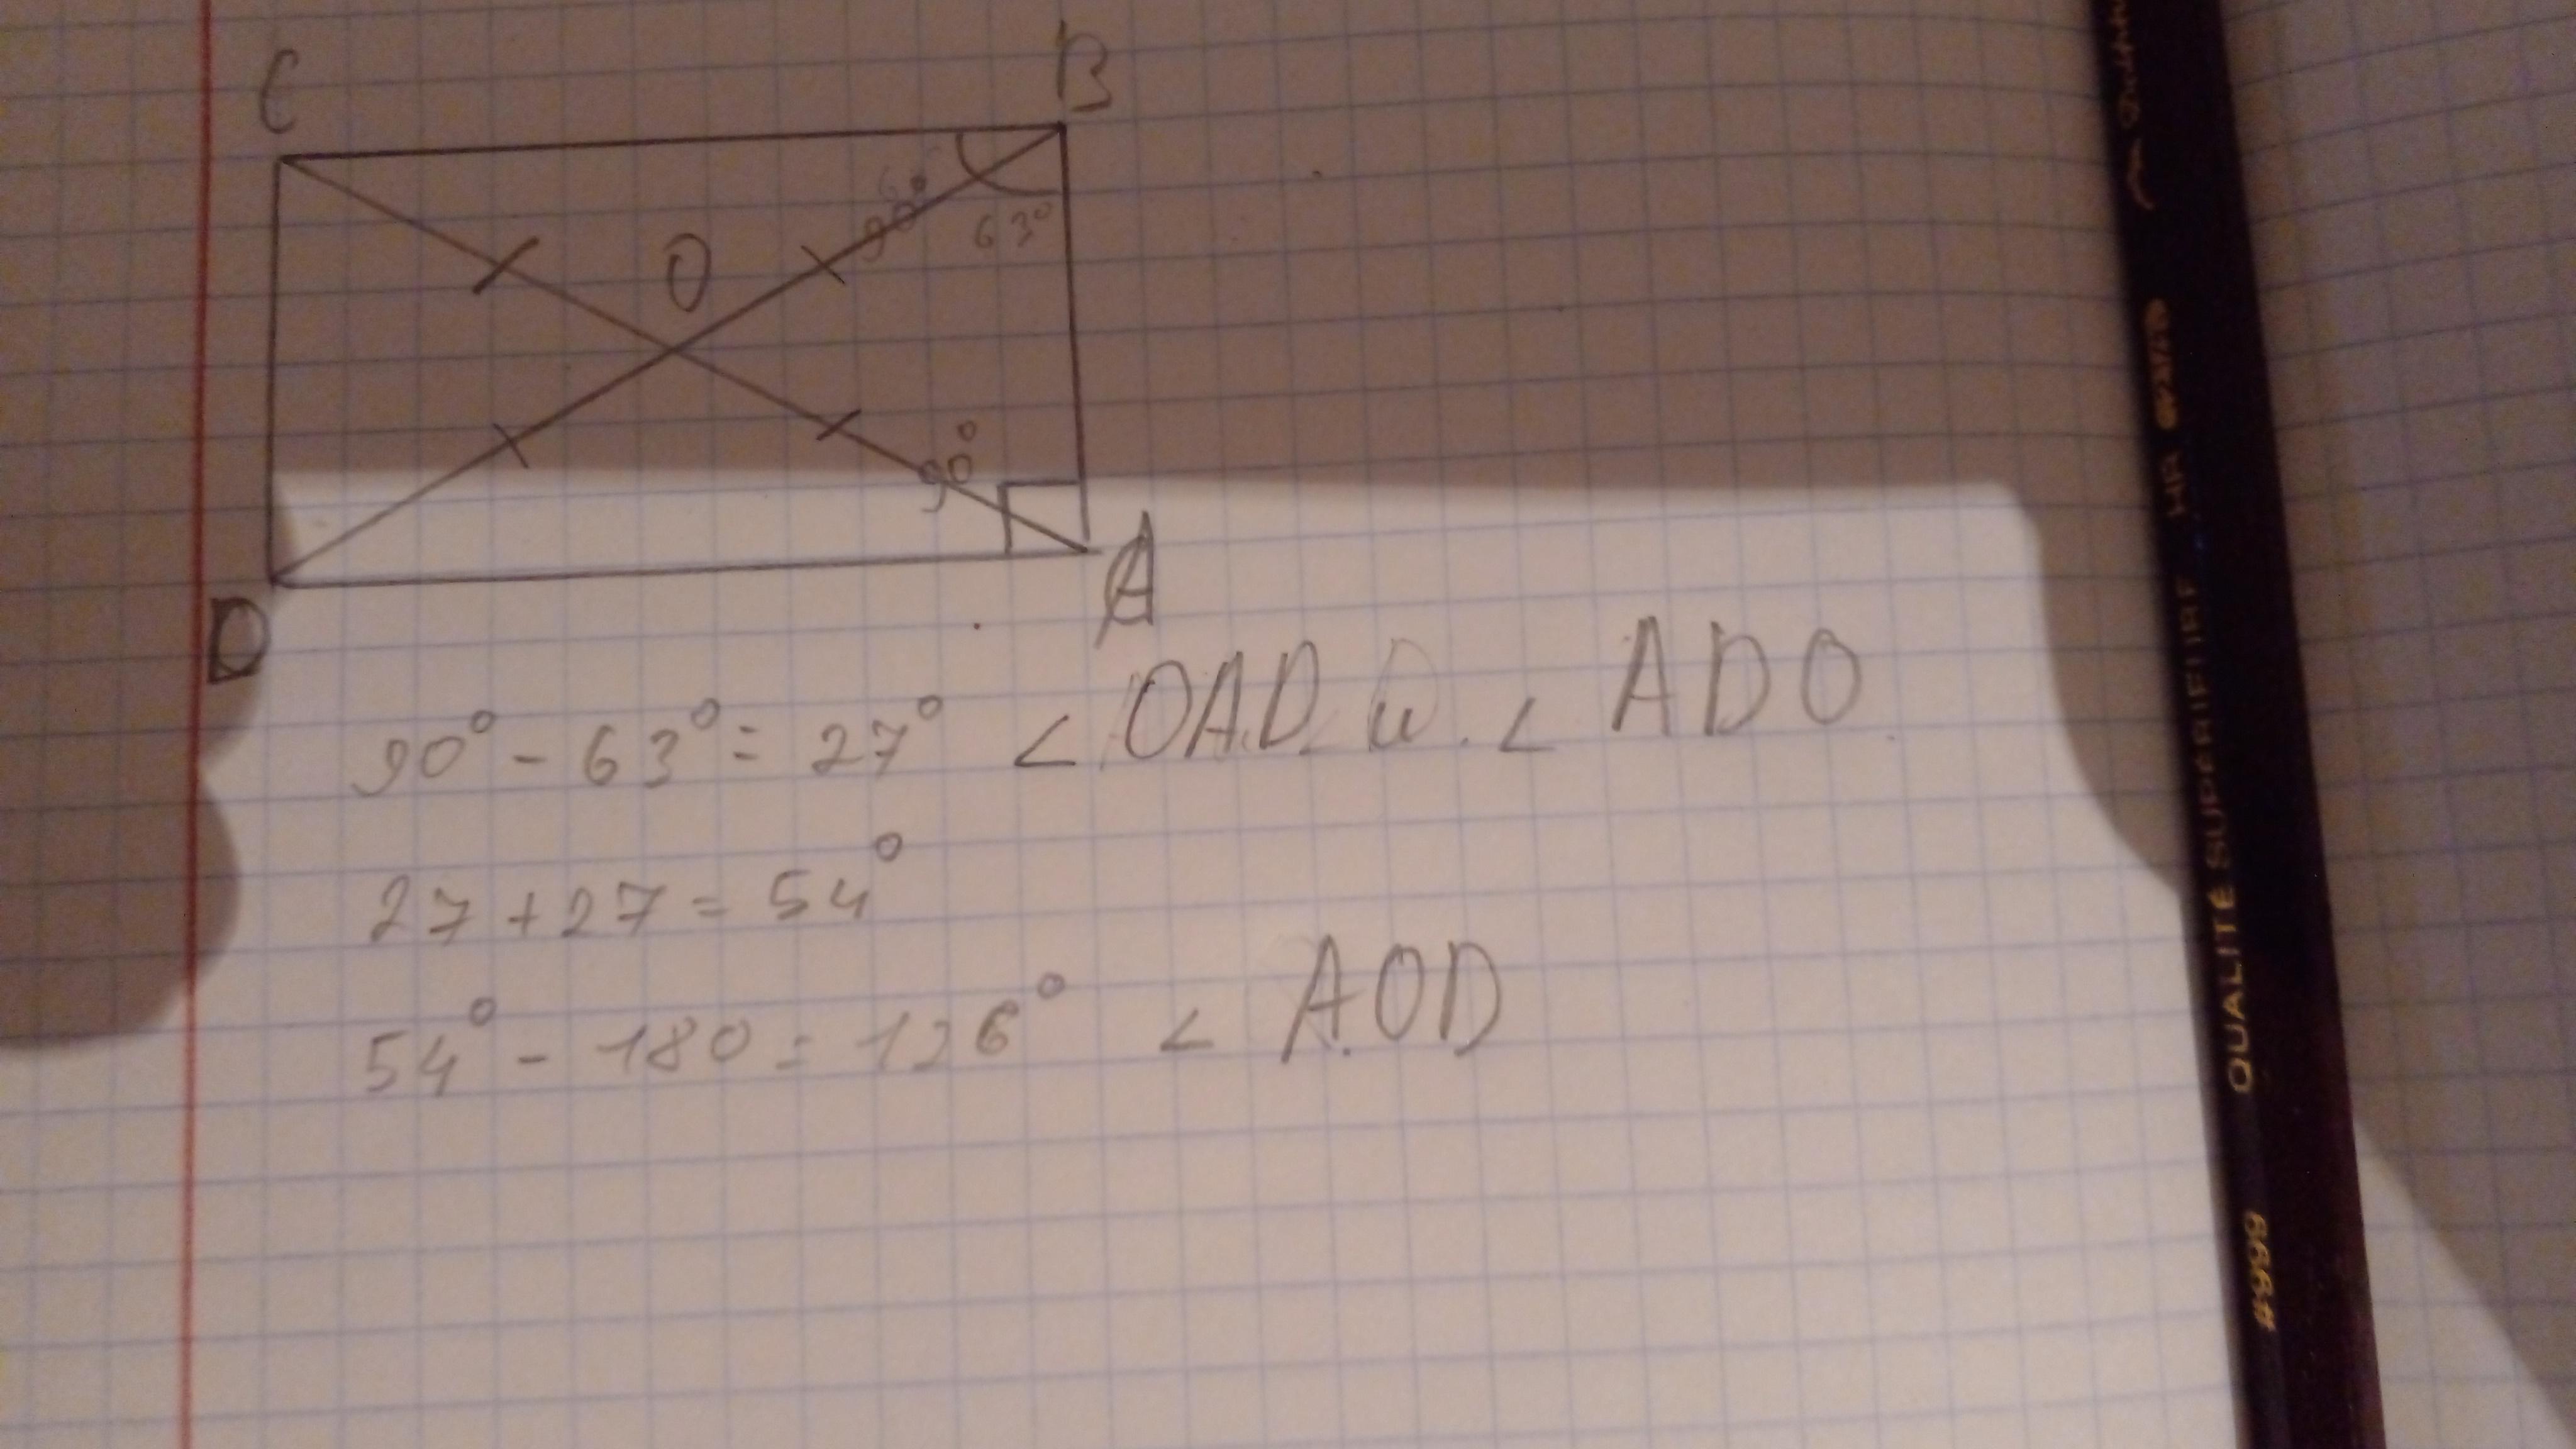 C B
90°
63°
O
90°
A
D
90° - 63° = 27° < OAD и < ADO
27 + 27 = 54°
54° - 180 = 126° < AOD
QUALITÉ SUPÉRIEURE HB
#999